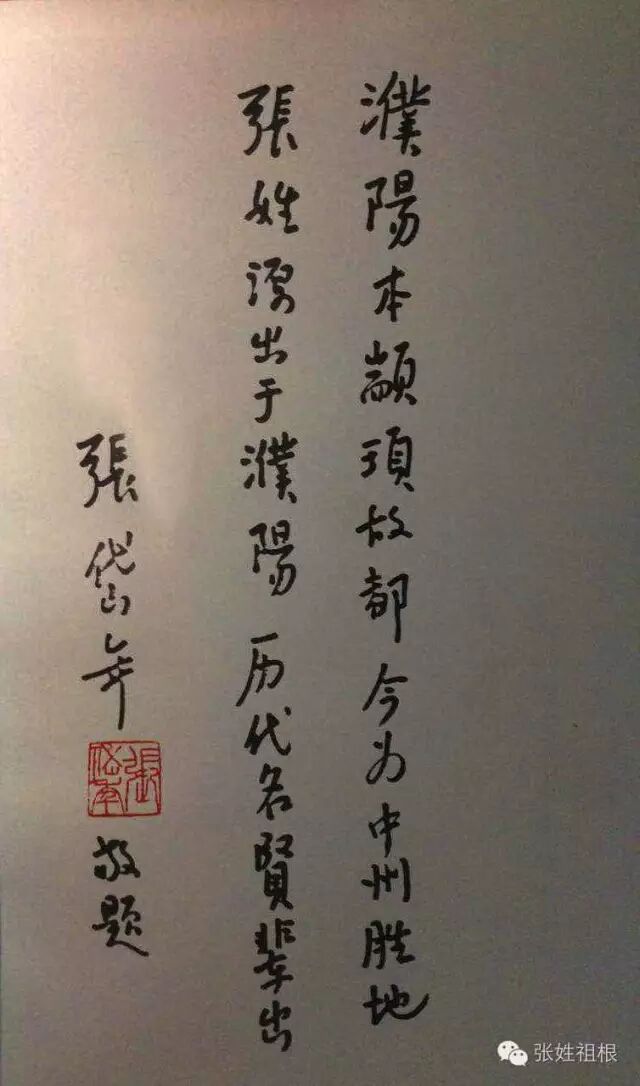 濮陽本顓頊故都今为中州胜地
張姓源出于濮陽历代名賢輩出
張岱年
張岱年
敬题
张姓祖根